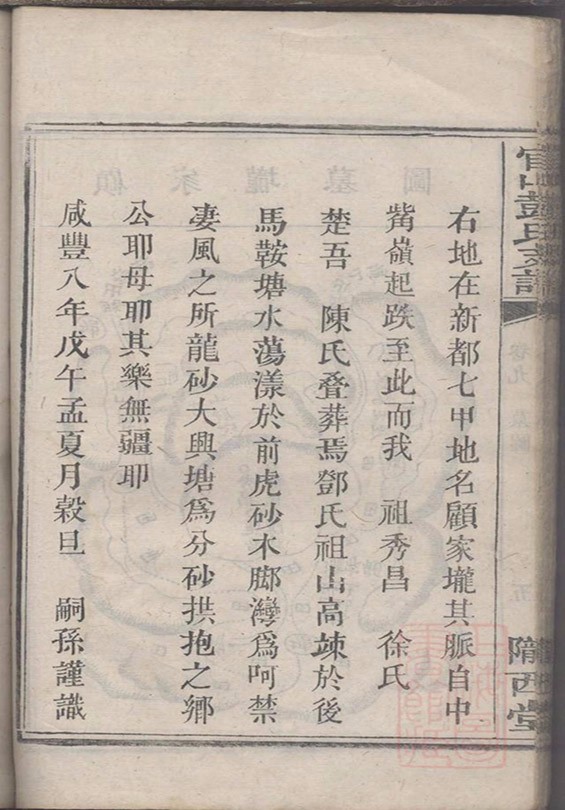 右地在新都七甲地名顧家壠其脈自中
觜嶺起跌至此而我　祖秀昌　徐氏
楚吾　陳氏叠葬焉鄧氏祖山高竦於後
馬鞍塘水蕩漾於前虎砂木脚灣爲呵禁
凄風之所龍砂大興塘爲分砂拱抱之鄉
公耶母耶其樂無疆耶
咸豐八年戊午孟夏月穀旦　嗣孫謹識
隴西堂